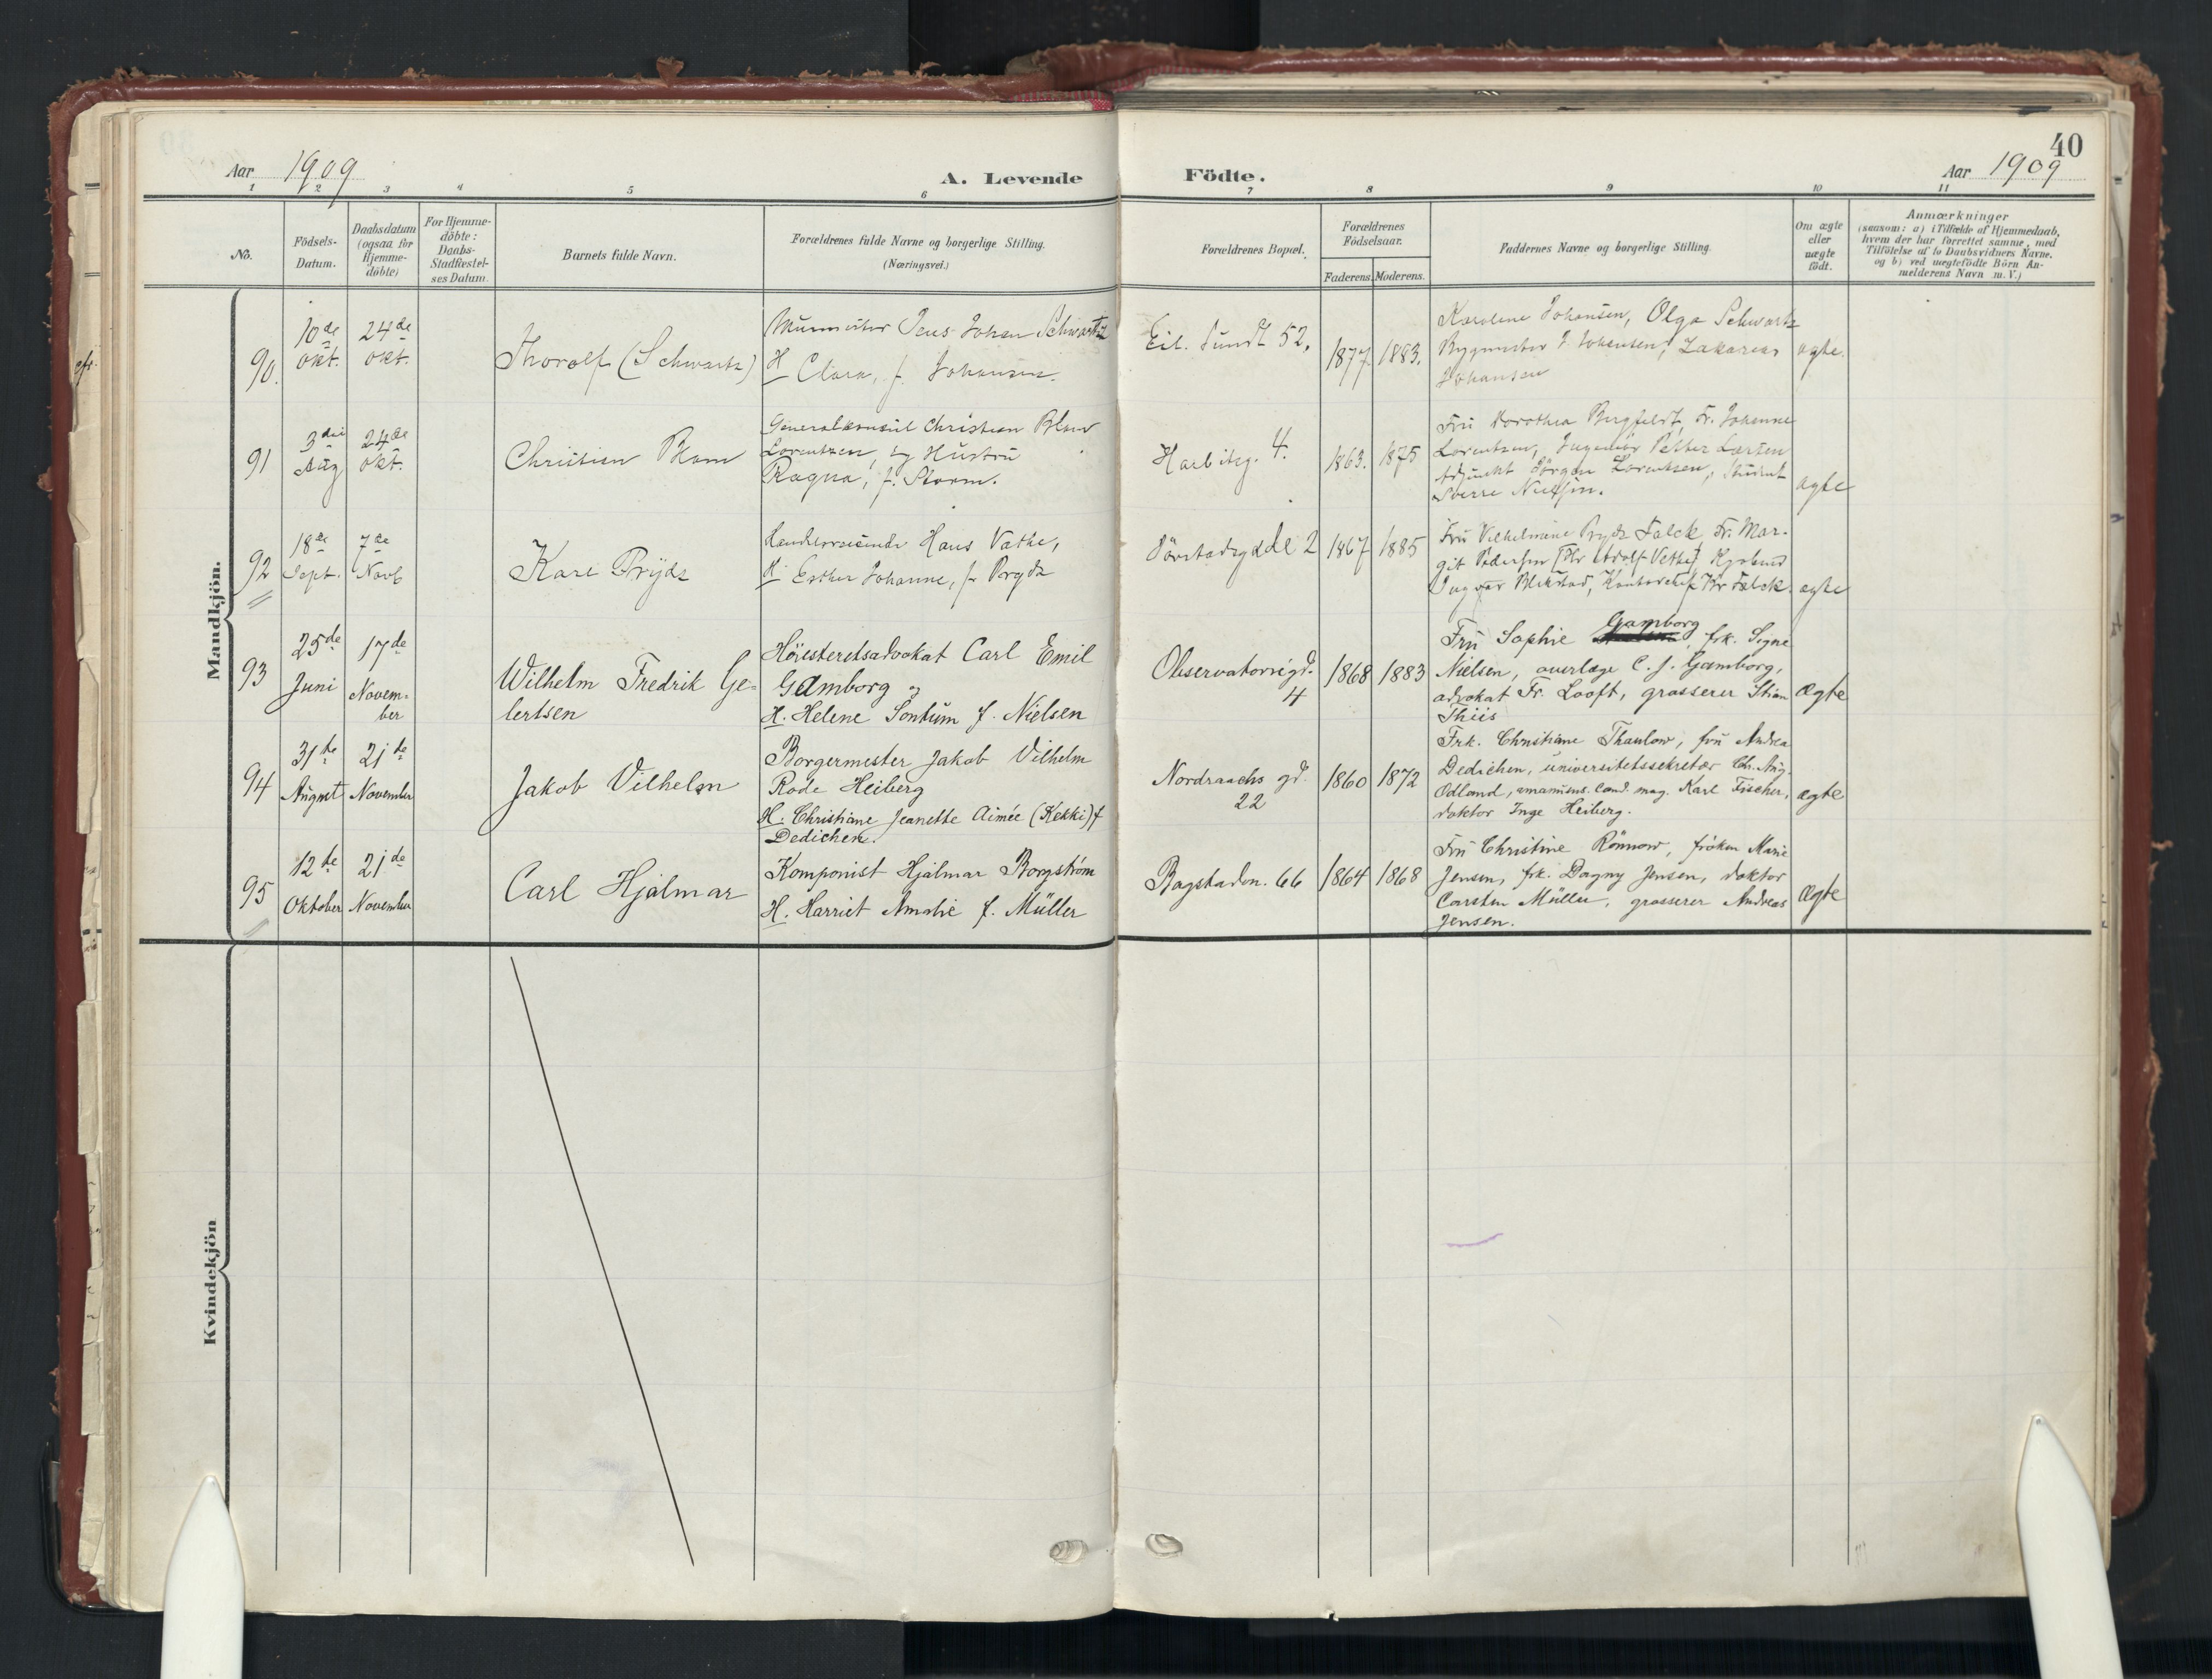 40
Aar 1909
A. Levende Födte.
Aar 1909
1 2 3 4 5 6 7 8 9 10 11
No.
Födsels-
Datum.
Daabsdatum
(ogsaa for
Hjemme-
döbte)
For Hjemme-
döbte:
Daabs-
Stadfæstel-
ses Datum.
Barnets fulde Navn.
Forældrenes fulde Navne og borgerlige Stilling.
(Næringsvei.)
Forældrenes Bopæl.
Forældrenes
Födselsaar.
Faderens. Moderens.
Faddernes Navne og borgerlige Stilling.
Om ægte
eller
uægte
födt.
Anmærkninger
(saasom: a) i Tilfælde af Hjemmedaab,
hvem der har forrettet samme, med
Tilföielse af to Daabsvidners Navne,
og b) ved uægtefödte Börn An-
melderens Navn m. V.)
Mandkjön.
90.
10de
Okt.
24de
Okt.
Thorolf (Schwartz)
Murmester Jens Johan Schwartz
H Clara, f. Johansen.
Eil. Sundt 52.
1877 1883.
Karoline Johansen, Olga Schwartz
Bygmester J. Johansen, Zakarias
Johansen
ægte.
91
3die
Aug
24de
Okt.
Christian Blom
Generalkonsul Christian Blom
Lorentzen, og Hustru
Ragna, f. Storm.
Harbitzg. 4.
1863. 1875
Fru Dorothea Bergfeldt, Fr. Johanne
Lorentzen, Ingeniør Petter Larsen
Adjunkt Jørgen Lorentzen, Student
Sverre Nielsen.
ægte
92
18de
Sept.
7de
Novb
Kare Prydz
Handelsreisende Hans Vethe,
H. Esther Johanne, f. Prydz
1867 1885
Fru Vilhelmine Prydz Falck Fr. Mar-
git Pedersen (Hr Adolf Vethe)
Ingvar Blikstad, Kontorchef Hr Falck.
ægte
93
25de
Juni
17de
Novem-
ber
Wilhelm Fredrik Ge-
lertsen
Høiesteretsadvokat Carl Emil
Gamborg og
H. Helene Sontum f. Nielsen
Observatoriegd.
4
1868 1883
Gamborg
Fru Sophie, frk. Signe
Nielsen, overlæge C. J. Gamborg,
advokat Fr. Looft, grosserer Stian
Thiis
ægte
94
31te
August
21de
November
Jakob Vilhelm
Borgermester Jakob Vilhelm
Rode Heiberg
H. Christiane Jeanette Aimée (Kekki) f
Dedichen.
Nordraachs gd.
22
1860 1872
Frk. Christiane Thaulow, fru Andrea
Dedichen, universitetssekretær Chr. Aug.
Odland, amanuens. cand. mag. Karl Fischer,
doktor Inge Heiberg.
ægte
95
12te
Oktober
21de
November
Carl Hjalmar
Komponist Hjalmar Borgstrøm
H. Harriet Amalie f. Müller
Bogstadvn. 66
1864 1868
Fru Christine Rönnow, fröken Marie
Jensen, frk. Dagny Jensen, doktor
Carsten Müller, grosserer Andreas
Jensen.
ægte
Kvindekjön